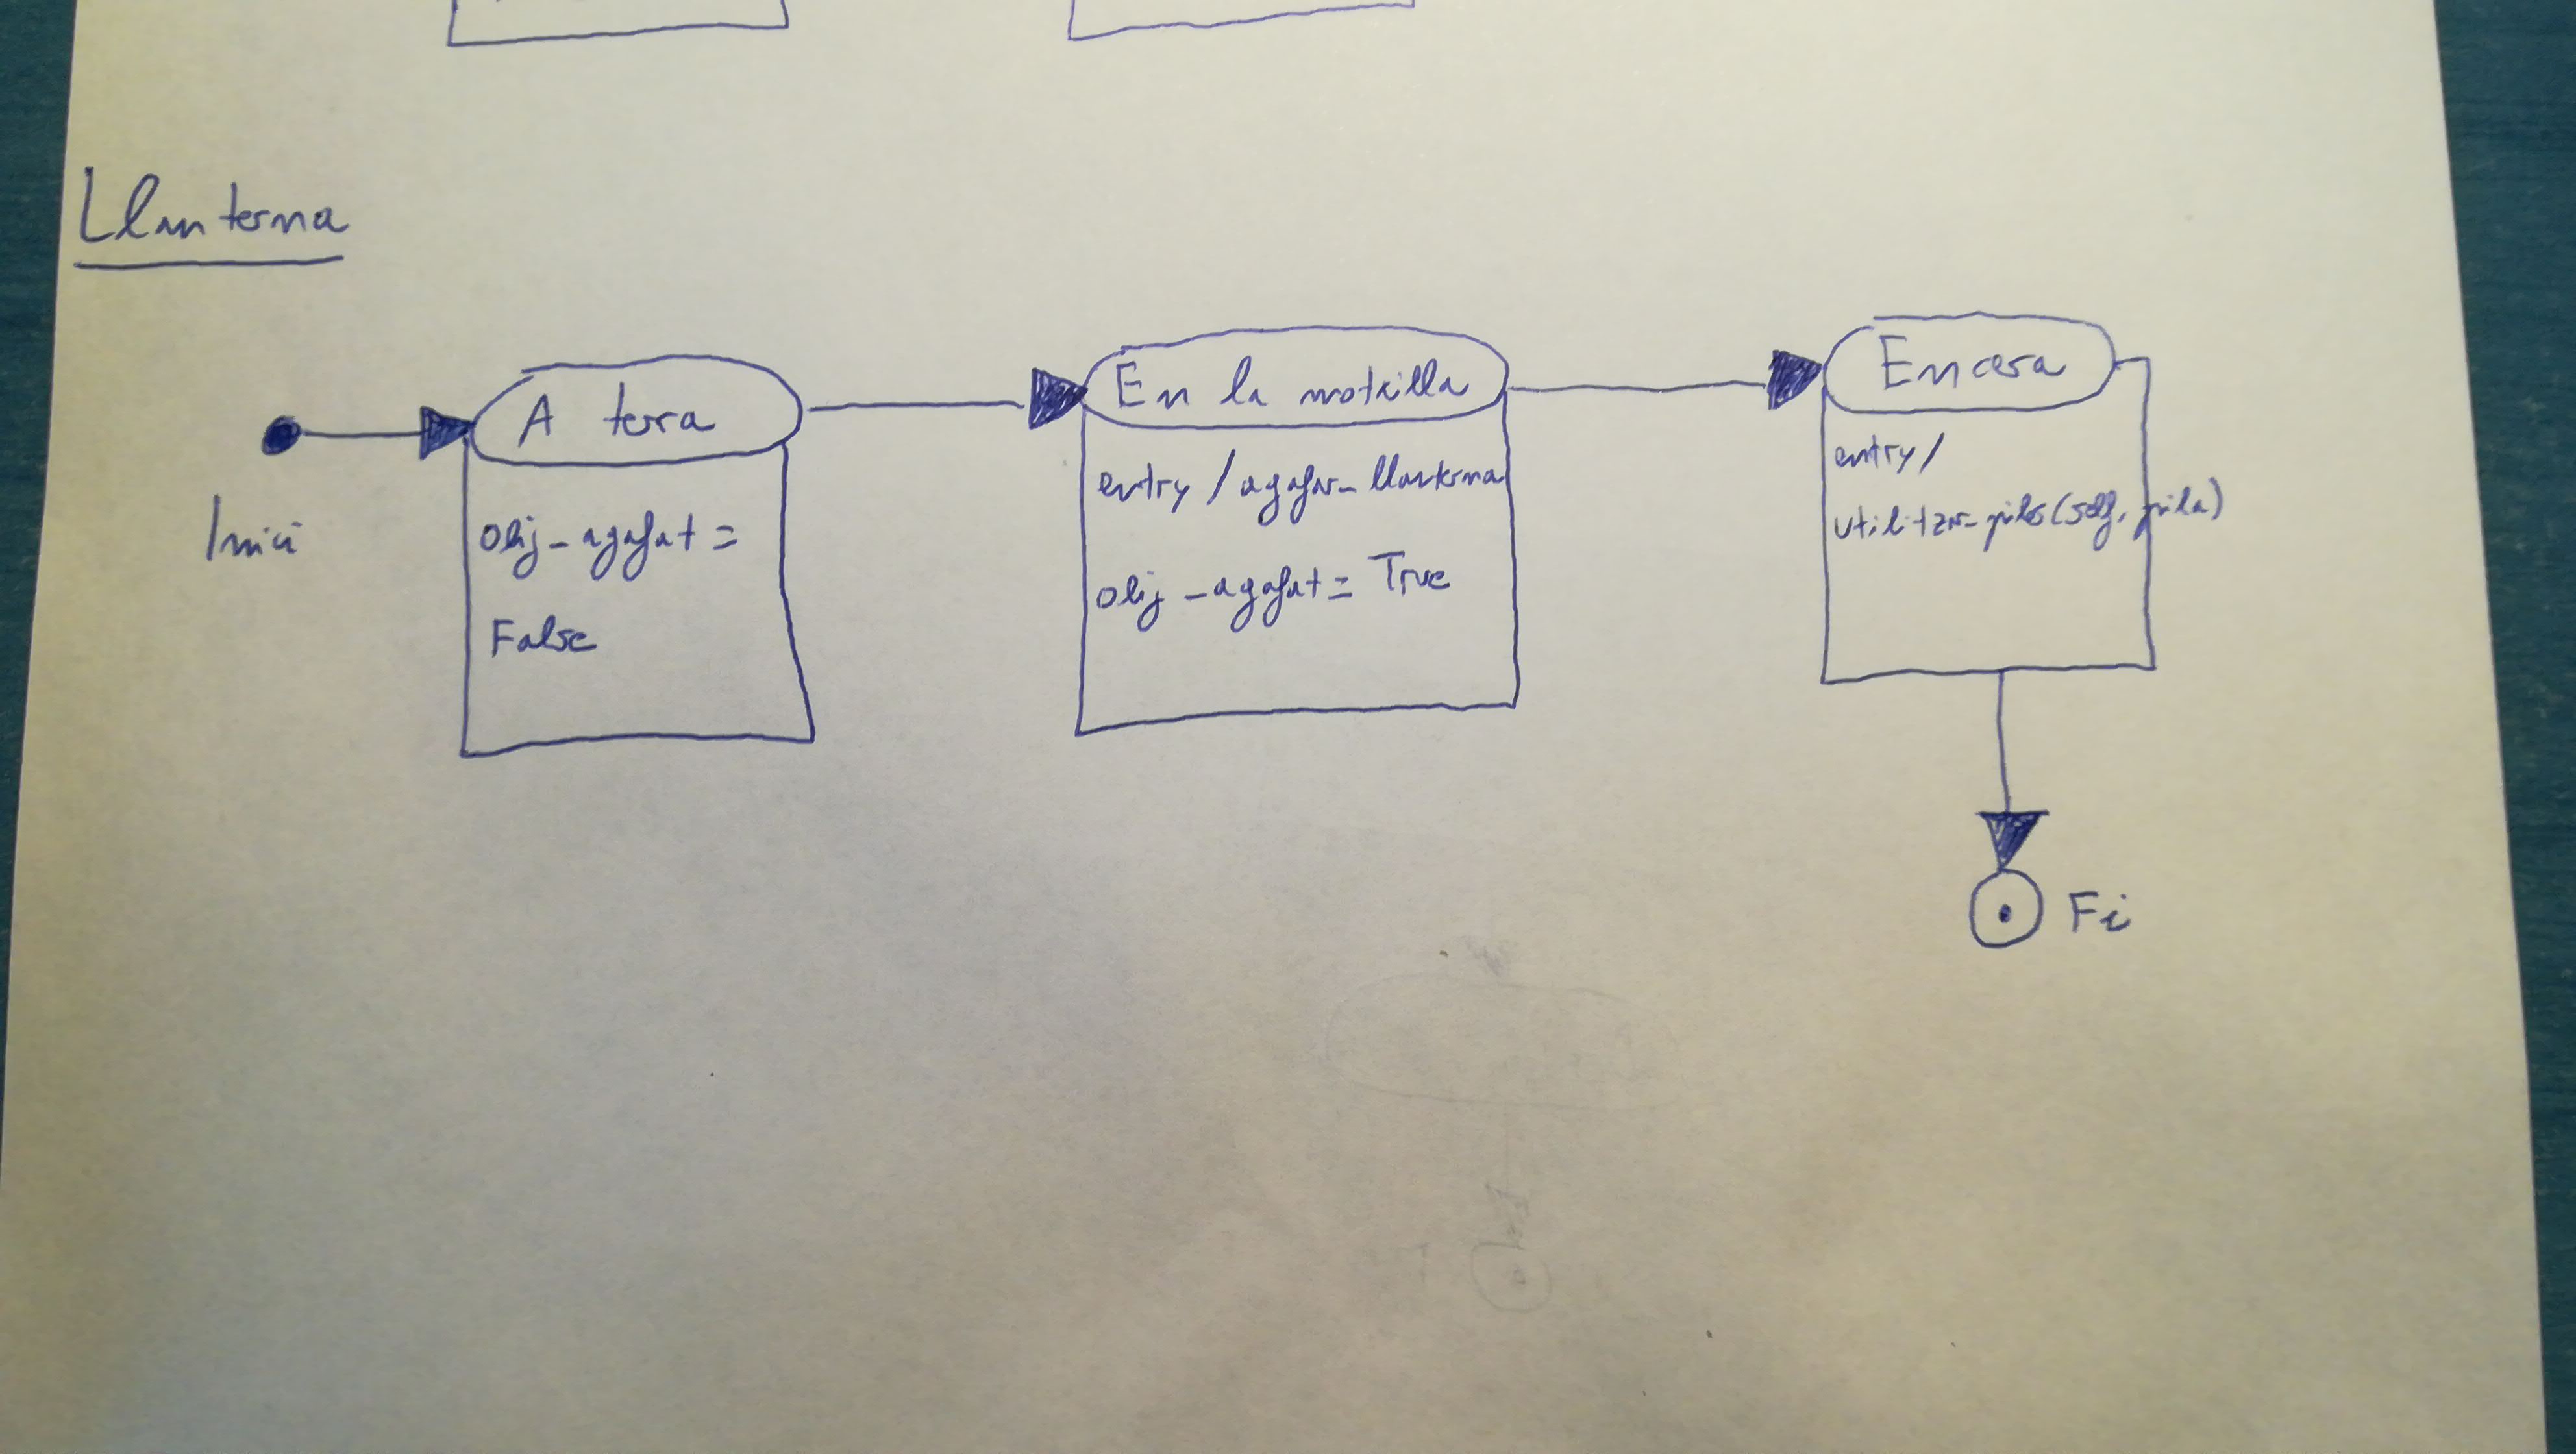 Llanterna
Inici
A terra
obj_agafat =
False
En la motxilla
entry / agafar_llanterna
obj_agafat = True
Encesa
entry/
utilitzar_piles(self, pila)
Fi